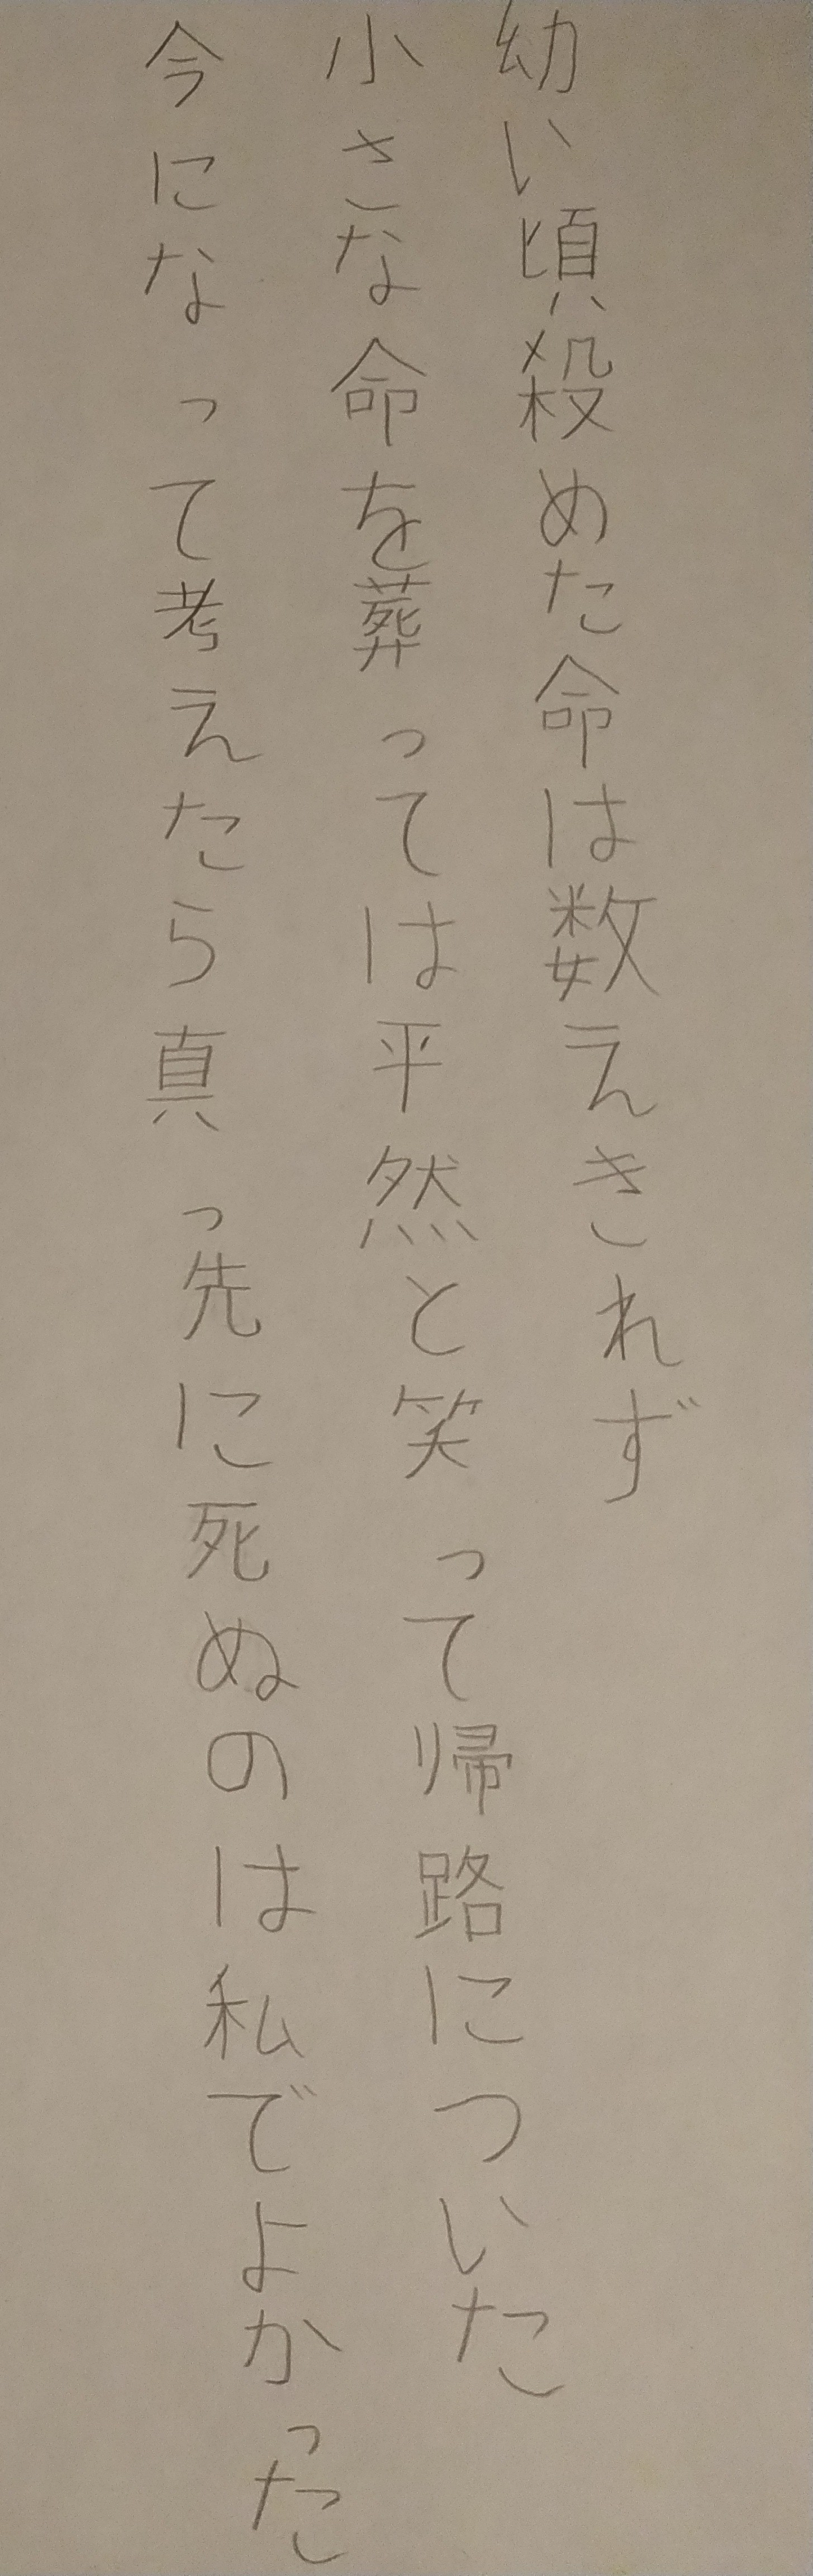 幼い頃殺めた命は数えきれず
小さな命を葬っては平然と笑って帰路についた
今になって考えたら真っ先に死ぬのは私でよかった